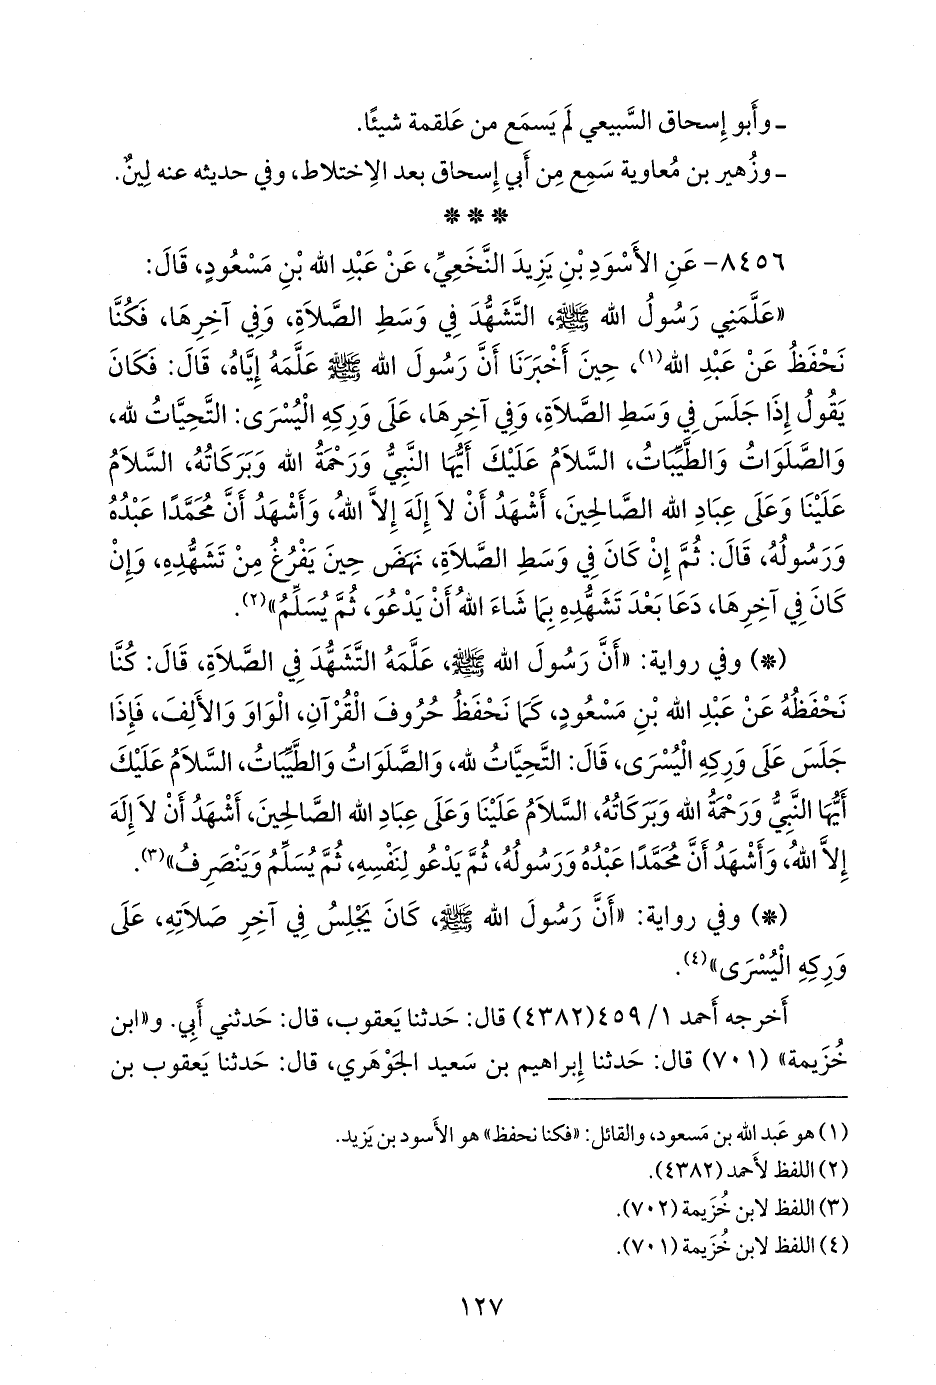 ـ وأَبو إِسحاق السَّبيعي لَم يَسمَع من عَلقمة شيئًا.
ـ وزُهير بن مُعاوية سَمِع مِن أَبي إِسحاق بعد الِاختلاط، وفي حديثه عنه لِينٌ.
* * *
٨٤٥٦- عَنِ الأَسْوَدِ بْنِ يَزِيدَ النَّخَعِيِّ، عَنْ عَبْدِ الله بْنِ مَسْعُودٍ، قَالَ:
«عَلَّمَنِي رَسُولُ الله ﷺ، التَّشَهُّدَ فِي وَسَطِ الصَّلَاةِ، وَفِي آخِرِهَا، فَكُنَّا
نَحْفَظُ عَنْ عَبْدِ الله(١)، حِينَ أَخْبَرَنَا أَنَّ رَسُولَ الله ﷺ عَلَّمَهُ إِيَّاهُ، قَالَ: فَكَانَ
يَقُولُ إِذَا جَلَسَ فِي وَسَطِ الصَّلَاةِ، وَفِي آخِرِهَا، عَلَى وَرِكِهِ الْيُسْرَى: التَّحِيَّاتُ لله،
وَالصَّلَوَاتُ وَالطَّيِّبَاتُ، السَّلَامُ عَلَيْكَ أَيُّهَا النَّبِيُّ وَرَحْمَةُ الله وَبَرَكَاتُهُ، السَّلَامُ
عَلَيْنَا وَعَلَى عِبَادِ الله الصَّالِحِينَ، أَشْهَدُ أَنْ لَا إِلَهَ إِلَّا اللهُ، وَأَشْهَدُ أَنَّ مُحَمَّدًا عَبْدُهُ
وَرَسُولُهُ، قَالَ: ثُمَّ إِنْ كَانَ فِي وَسَطِ الصَّلَاةِ، نَهَضَ حِينَ يَفْرُغُ مِنْ تَشَهُّدِهِ، وَإِنْ
كَانَ فِي آخِرِهَا، دَعَا بَعْدَ تَشَهُّدِهِ بِمَا شَاءَ اللهُ أَنْ يَدْعُوَ، ثُمَّ يُسَلِّمُ»(٢).
(*) وفي رواية: «أَنَّ رَسُولَ الله ﷺ، عَلَّمَهُ التَّشَهُّدَ فِي الصَّلَاةِ، قَالَ: كُنَّا
نَحْفَظُهُ عَنْ عَبْدِ الله بْنِ مَسْعُودٍ، كَمَا نَحْفَظُ حُرُوفَ الْقُرْآنِ، الْوَاوَ وَالأَلِفَ، فَإِذَا
جَلَسَ عَلَى وَرِكِهِ الْيُسْرَى، قَالَ: التَّحِيَّاتُ لله، وَالصَّلَوَاتُ وَالطَّيِّبَاتُ، السَّلَامُ عَلَيْكَ
أَيُّهَا النَّبِيُّ وَرَحْمَةُ الله وَبَرَكَاتُهُ، السَّلَامُ عَلَيْنَا وَعَلَى عِبَادِ الله الصَّالِحِينَ، أَشْهَدُ أَنْ لَا إِلَهَ
إِلَّا اللهُ، وَأَشْهَدُ أَنَّ مُحَمَّدًا عَبْدُهُ وَرَسُولُهُ، ثُمَّ يَدْعُو لِنَفْسِهِ، ثُمَّ يُسَلِّمُ وَيَنْصَرِفُ»(٣).
(*) وفي رواية: «أَنَّ رَسُولَ الله ﷺ، كَانَ يَجْلِسُ فِي آخِرِ صَلَاتِهِ، عَلَى
وَرِكِهِ الْيُسْرَى»(٤).
أَخرجه أَحمد ١/ ٤٥٩(٤٣٨٢) قال: حَدثنا يَعقوب، قال: حَدثني أَبي. و«ابن
خُزَيمة» (٧٠١) قال: حَدثنا إِبراهيم بن سَعيد الجَوْهَري، قال: حَدثنا يَعقوب بن
(١) هو عَبد الله بن مَسعود، والقائل: «فكنا نحفظ» هو الأَسود بن يَزيد.
(٢) اللفظ لأَحمد (٤٣٨٢).
(٣) اللفظ لابن خُزَيمة (٧٠٢).
(٤) اللفظ لابن خُزَيمة (٧٠١).
١٢٧